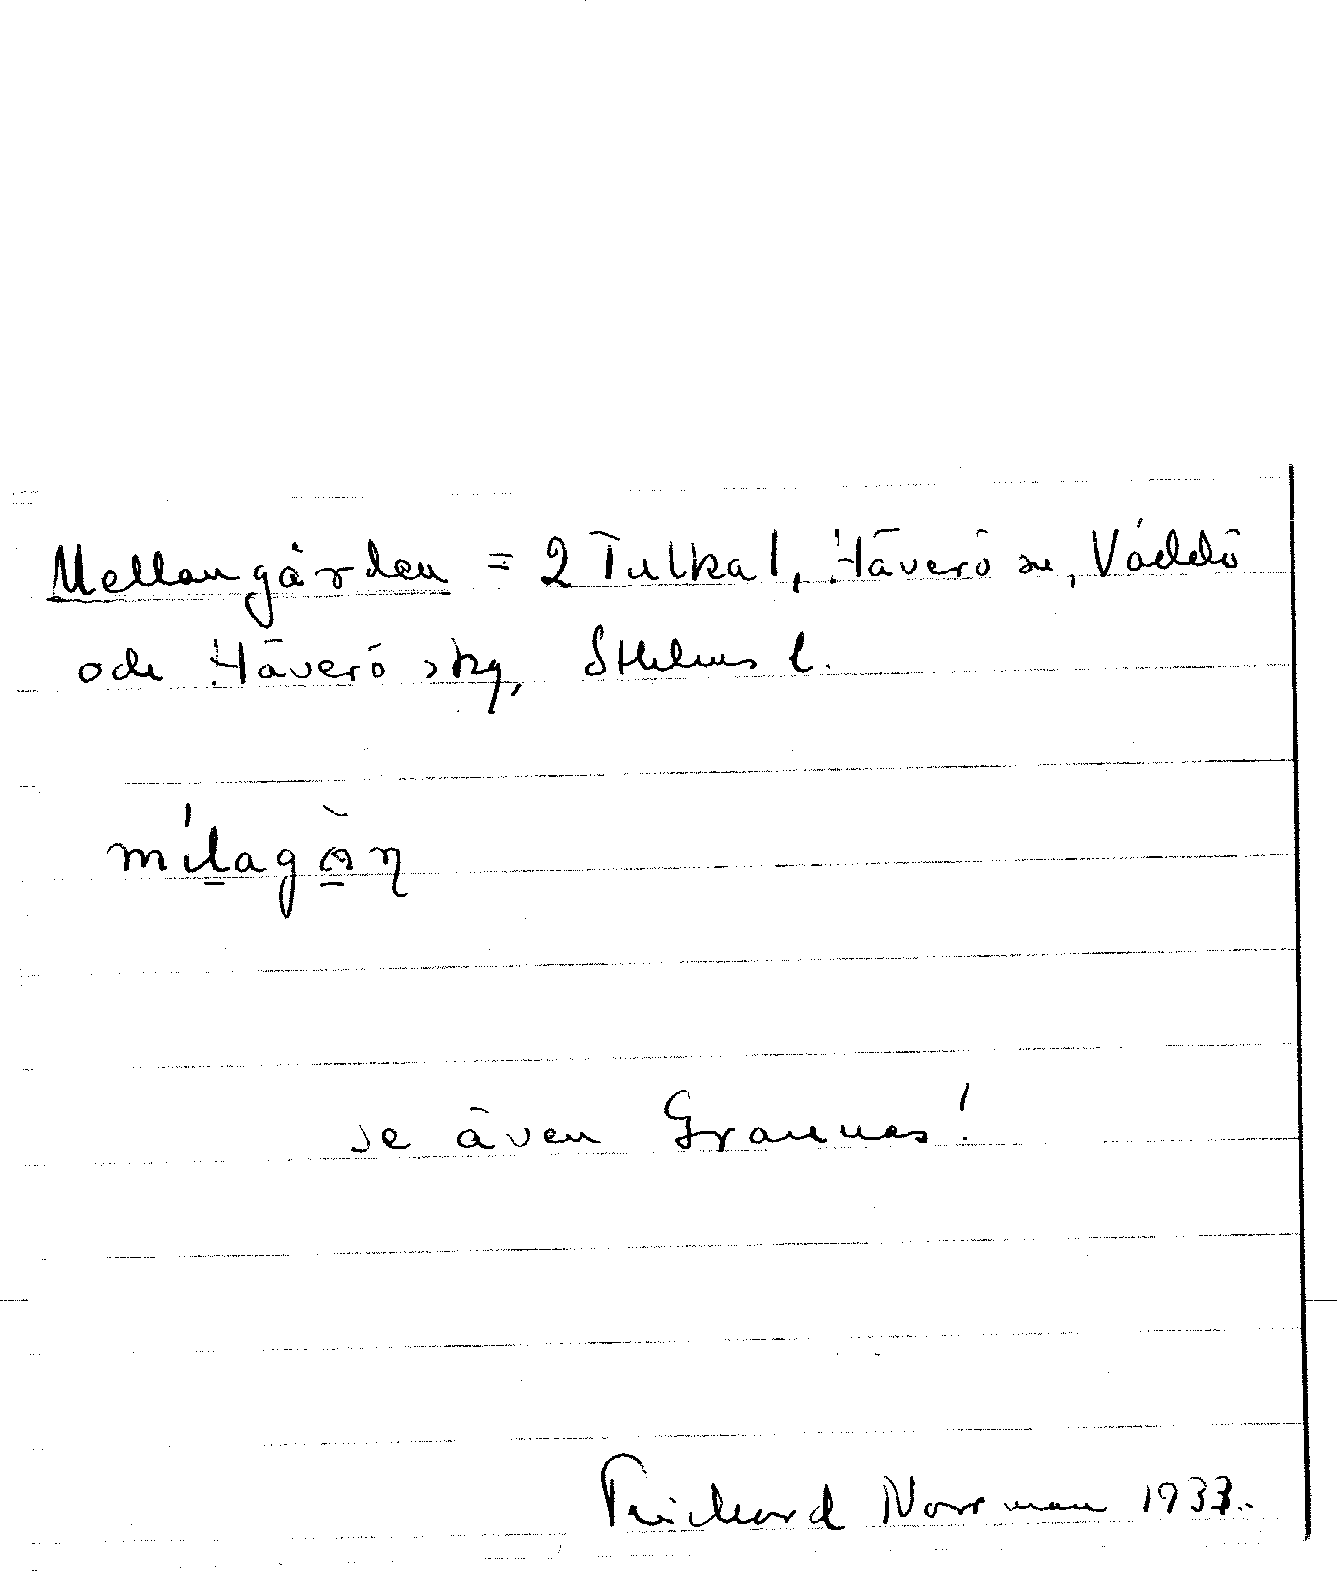 Mellangården = 2 Tulka 1, Häverö sn, Väddö
och Häverö skg, Sthlms l.
mílagàn
se även Grannas!
Richard Norrman 1933.